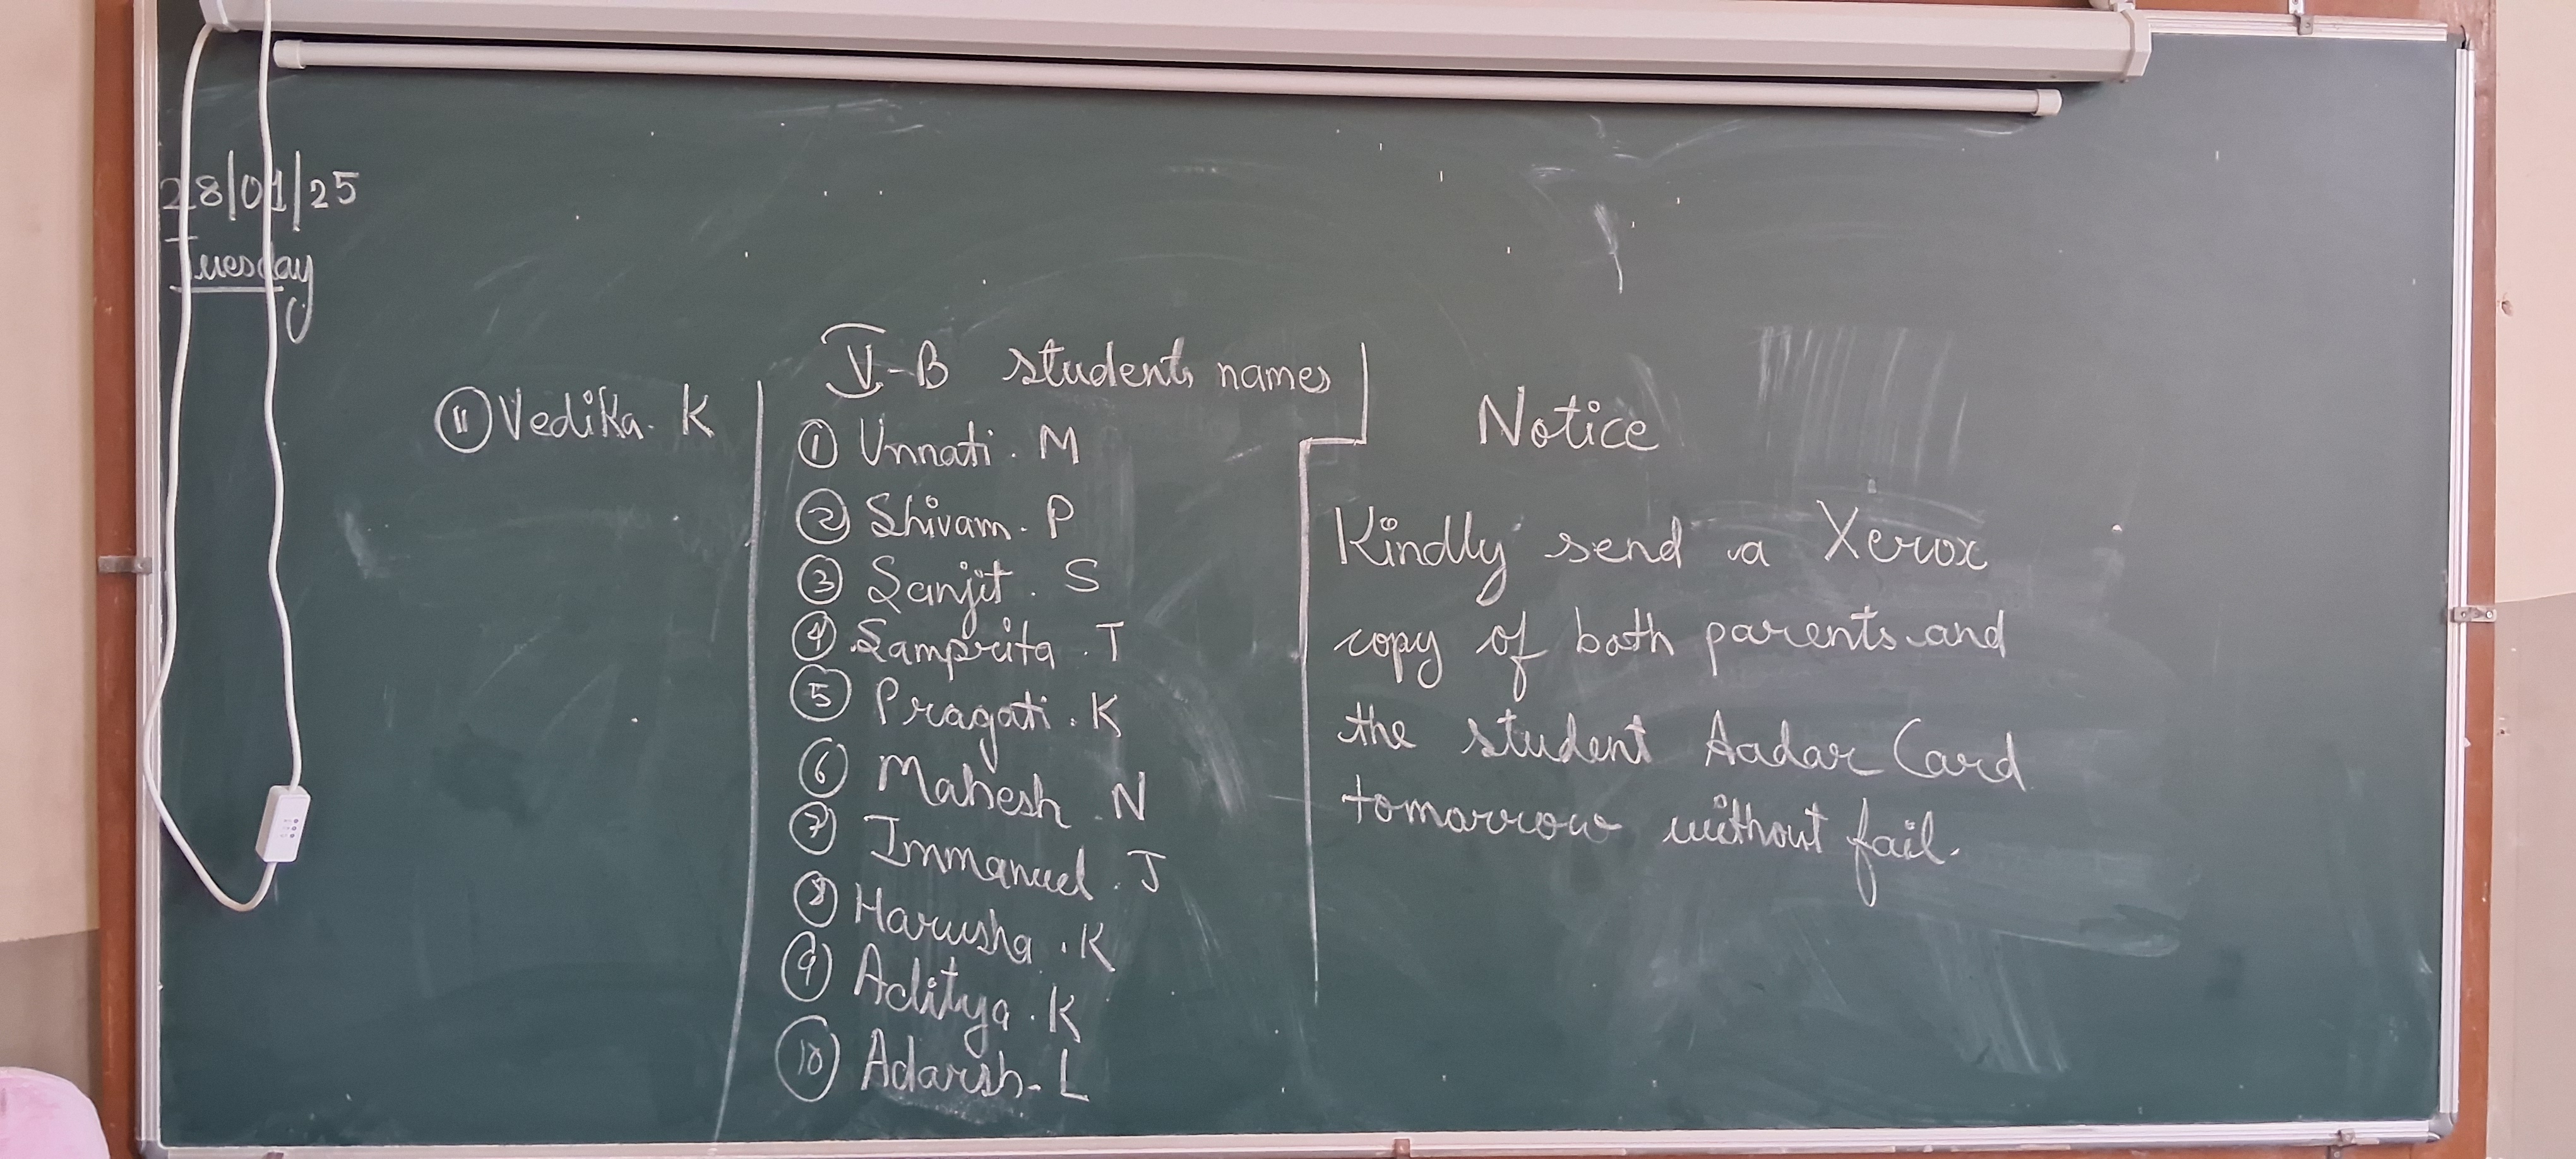 28/01/25
Tuesday
V-B students names
① Unnati. M
② Shivam. P
③ Sanjit. S
④ Samprita. T
⑤ Pragati. K
⑥ Mahesh. N
⑦ Immanuel. J
⑧ Harusha. K
⑨ Aditya. K
⑩ Adarsh. L
⑪ Vedika. K
Notice
Kindly send a Xerox
copy of both parents and
the student Aadar Card
tomorrow without fail.